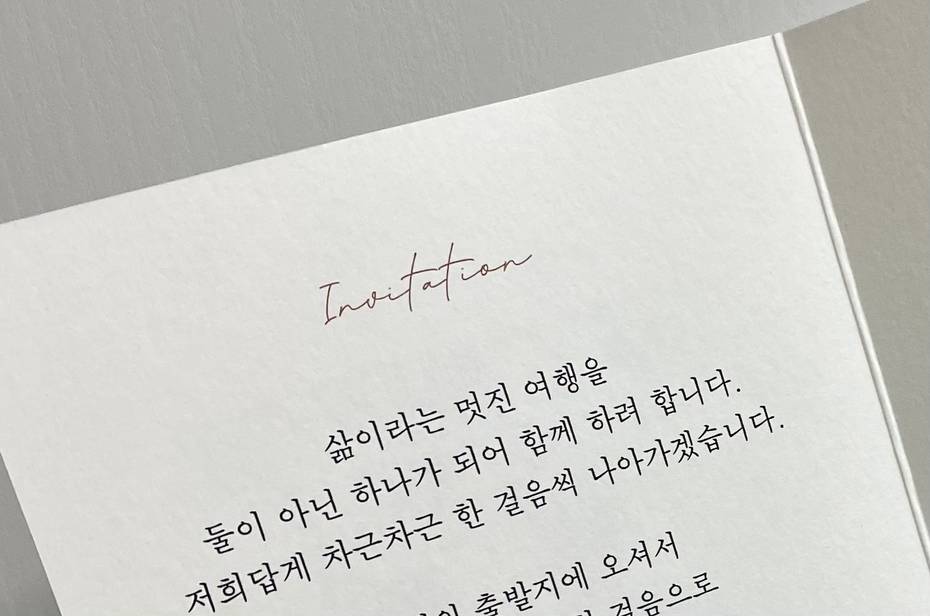 Invitation
삶이라는 멋진 여행을
둘이 아닌 하나가 되어 함께 하려 합니다.
저희답게 차근차근 한 걸음씩 나아가겠습니다.
출발지에 오셔서
걸음으로